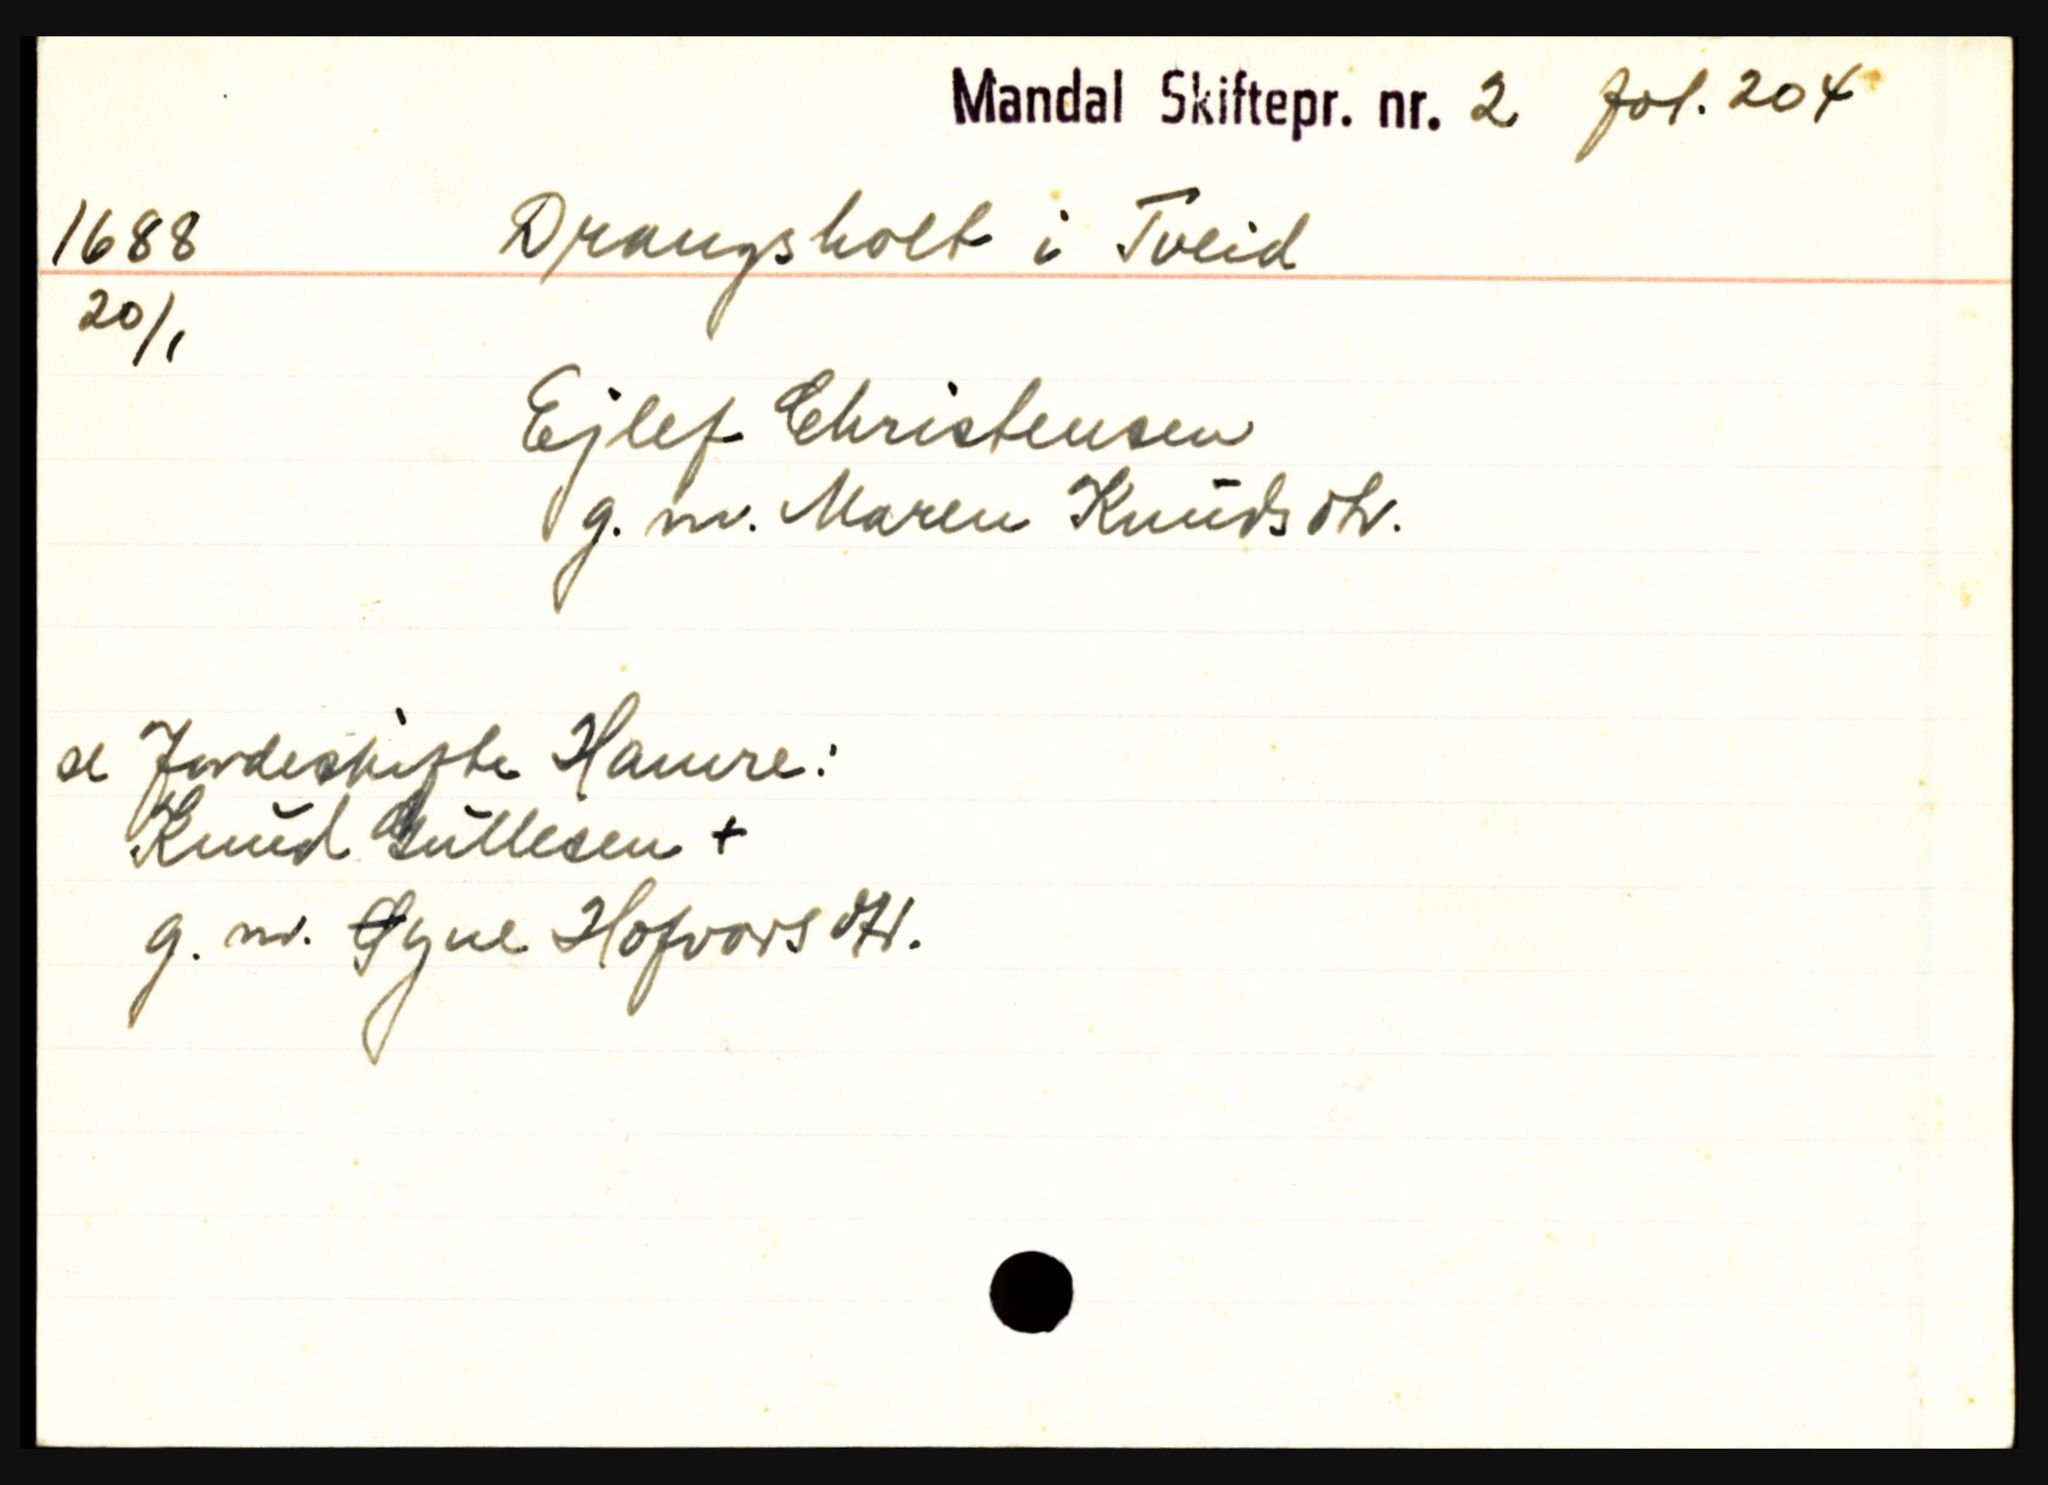 Mandal Skiftepr. nr. 2 fol. 204
1688 Drangsholt i Tveid
20/1
Ejlef Christensen
g. m. Maren Knudsdtr.
se Jordeskifte Hamre:
Knud Gullesen +
g. m. Sgne Hofvorsdtr.